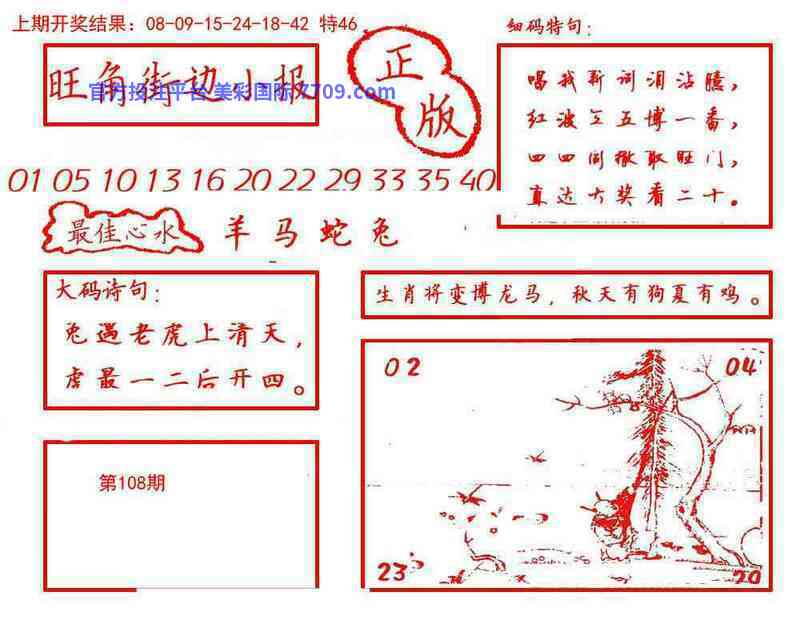 上期开奖结果：08-09-15-24-18-42 特46
旺角街边小报
官方投注平台 美彩国际 7709.com
正版
细码特句：
唱我新词泪沾臆，
红波三五博一番，
四四同撤取旺门，
直达大奖看二十。
01 05 10 13 16 20 22 29 33 35 40
最佳心水
羊马蛇兔
大码诗句：
兔遇老虎上清天，
虎最一二后开四。
生肖将变博龙马，秋天有狗夏有鸡。
第108期
02
04
23
20